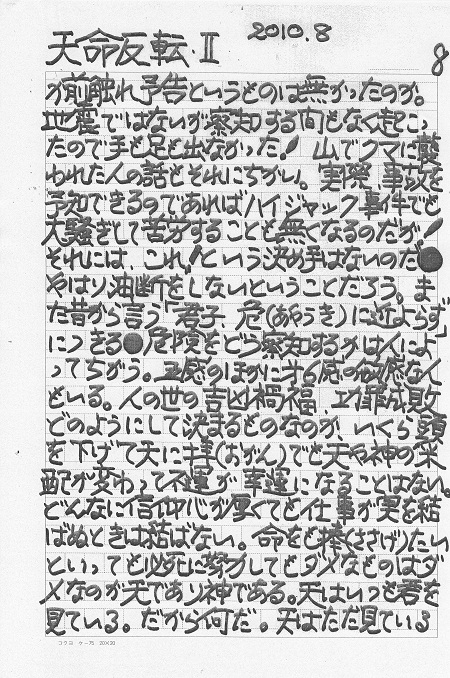 天命反転・Ⅱ 2010.8
8
が前触れ予告というものは無かったのか。
地震ではないが察知する間もなく起こっ
たので手も足も出なかった！山でクマに襲
われた人の話とそれにちかい。実際、事故を
予知できるのであればハイジャック事件でも
大騒ぎして苦労することも無くなるのだが！
それには、これ！という決め手はないのだ
やはり油断をしないということだろう。ま
た昔から言う「君子、危(あやうき)に近よらず」
につきる 危険をどう察知するかは人によ
ってちがう。五感のほかに才6感の敏感な人
もいる。人の世の吉凶禍福、功罪成敗
どのようにして決まるものなのか、いくら頭
を下げて天に拝(おがん)でも天や神の采
配が変わって不運が幸運になることはない。
どんなに信仰心が厚くても仕事が実を結
ばぬときは結ばない。命をも捧(ささげ)たい
といっても必死に努力してもダメなものはダ
メなのが天であり神である。天はいつも君を
見ている。だから何だ。天はただ見ている
コクヨ ケー75 20×20